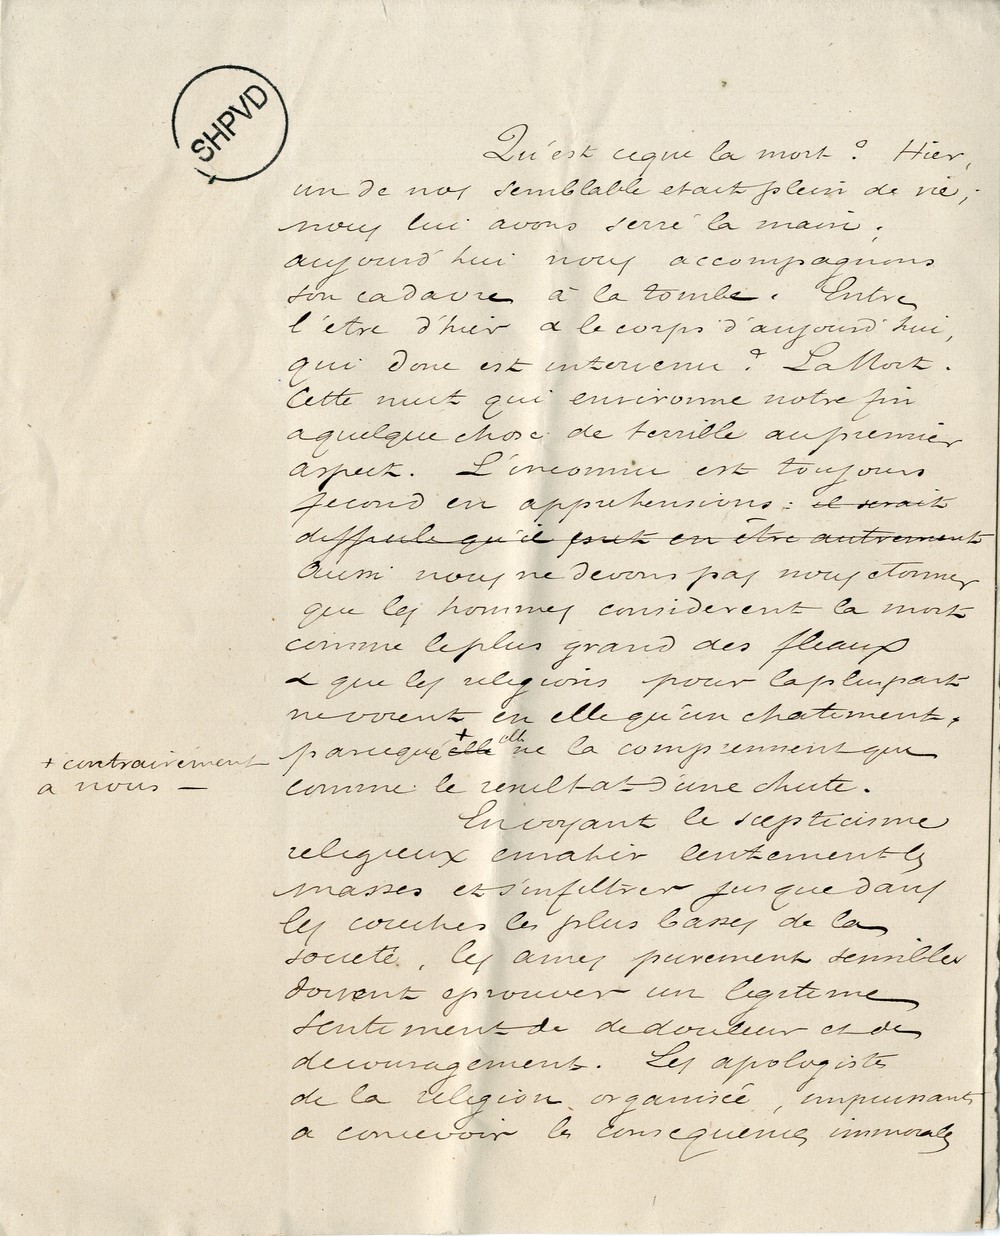 SHPVD
Qu'est ceque la mort ? Hier,
un de nos semblable etait plein de vie ;
nous lui avons serré la main ;
aujourd'hui nous accompagnons
son cadavre à la tombe. Entre
l'etre d'hier & le corps d'aujourd'hui,
qui donc est intervenu ? La Mort.
Cette nuit qui environne notre fin
a quelque chose de terrible au premier
aspect. L'inconnu est toujours
fecond en apprehensions : il serait
difficile qu'il put en être autrement
Aussi nous ne devons pas nous etonner
que les hommes considerent la mort
comme le plus grand des fleaux
& que les religions pour la plupart
ne voient en elle qu'un chatiment,
parceque + elle elle ne la comprennent que
+ contrairement
a nous —
comme le resultat d'une chute.
En voyant le scepticisme
religieux envahir lentement les
masses et s'infiltrer jusque dans
les couches les plus basses de la
societé, les ames purement sensibles
doivent eprouver un legitime
sentiment de de douleur et de
decouragement. Les apologistes
de la religion organisée, impuissants
a concevoir les consequences immorales